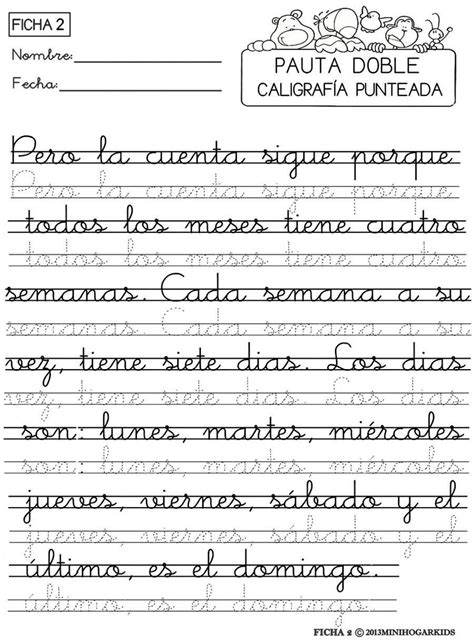 FICHA 2
Nombre:
Fecha:
PAUTA DOBLE
CALIGRAFÍA PUNTEADA
Pero la cuenta sigue porque
Pero la cuenta sigue porque
todos los meses tiene cuatro
todos los meses tiene cuatro
semanas. Cada semana a su
semanas. Cada semana a su
vez, tiene siete dias. Los dias
vez, tiene siete dias. Los dias
son: lunes, martes, miércoles
son: lunes, martes, miércoles
jueves, viernes, sábado y el
jueves, viernes, sábado y el
último, es el domingo.
último, es el domingo.
FICHA 2 © 2013MINIHOGARKIDS